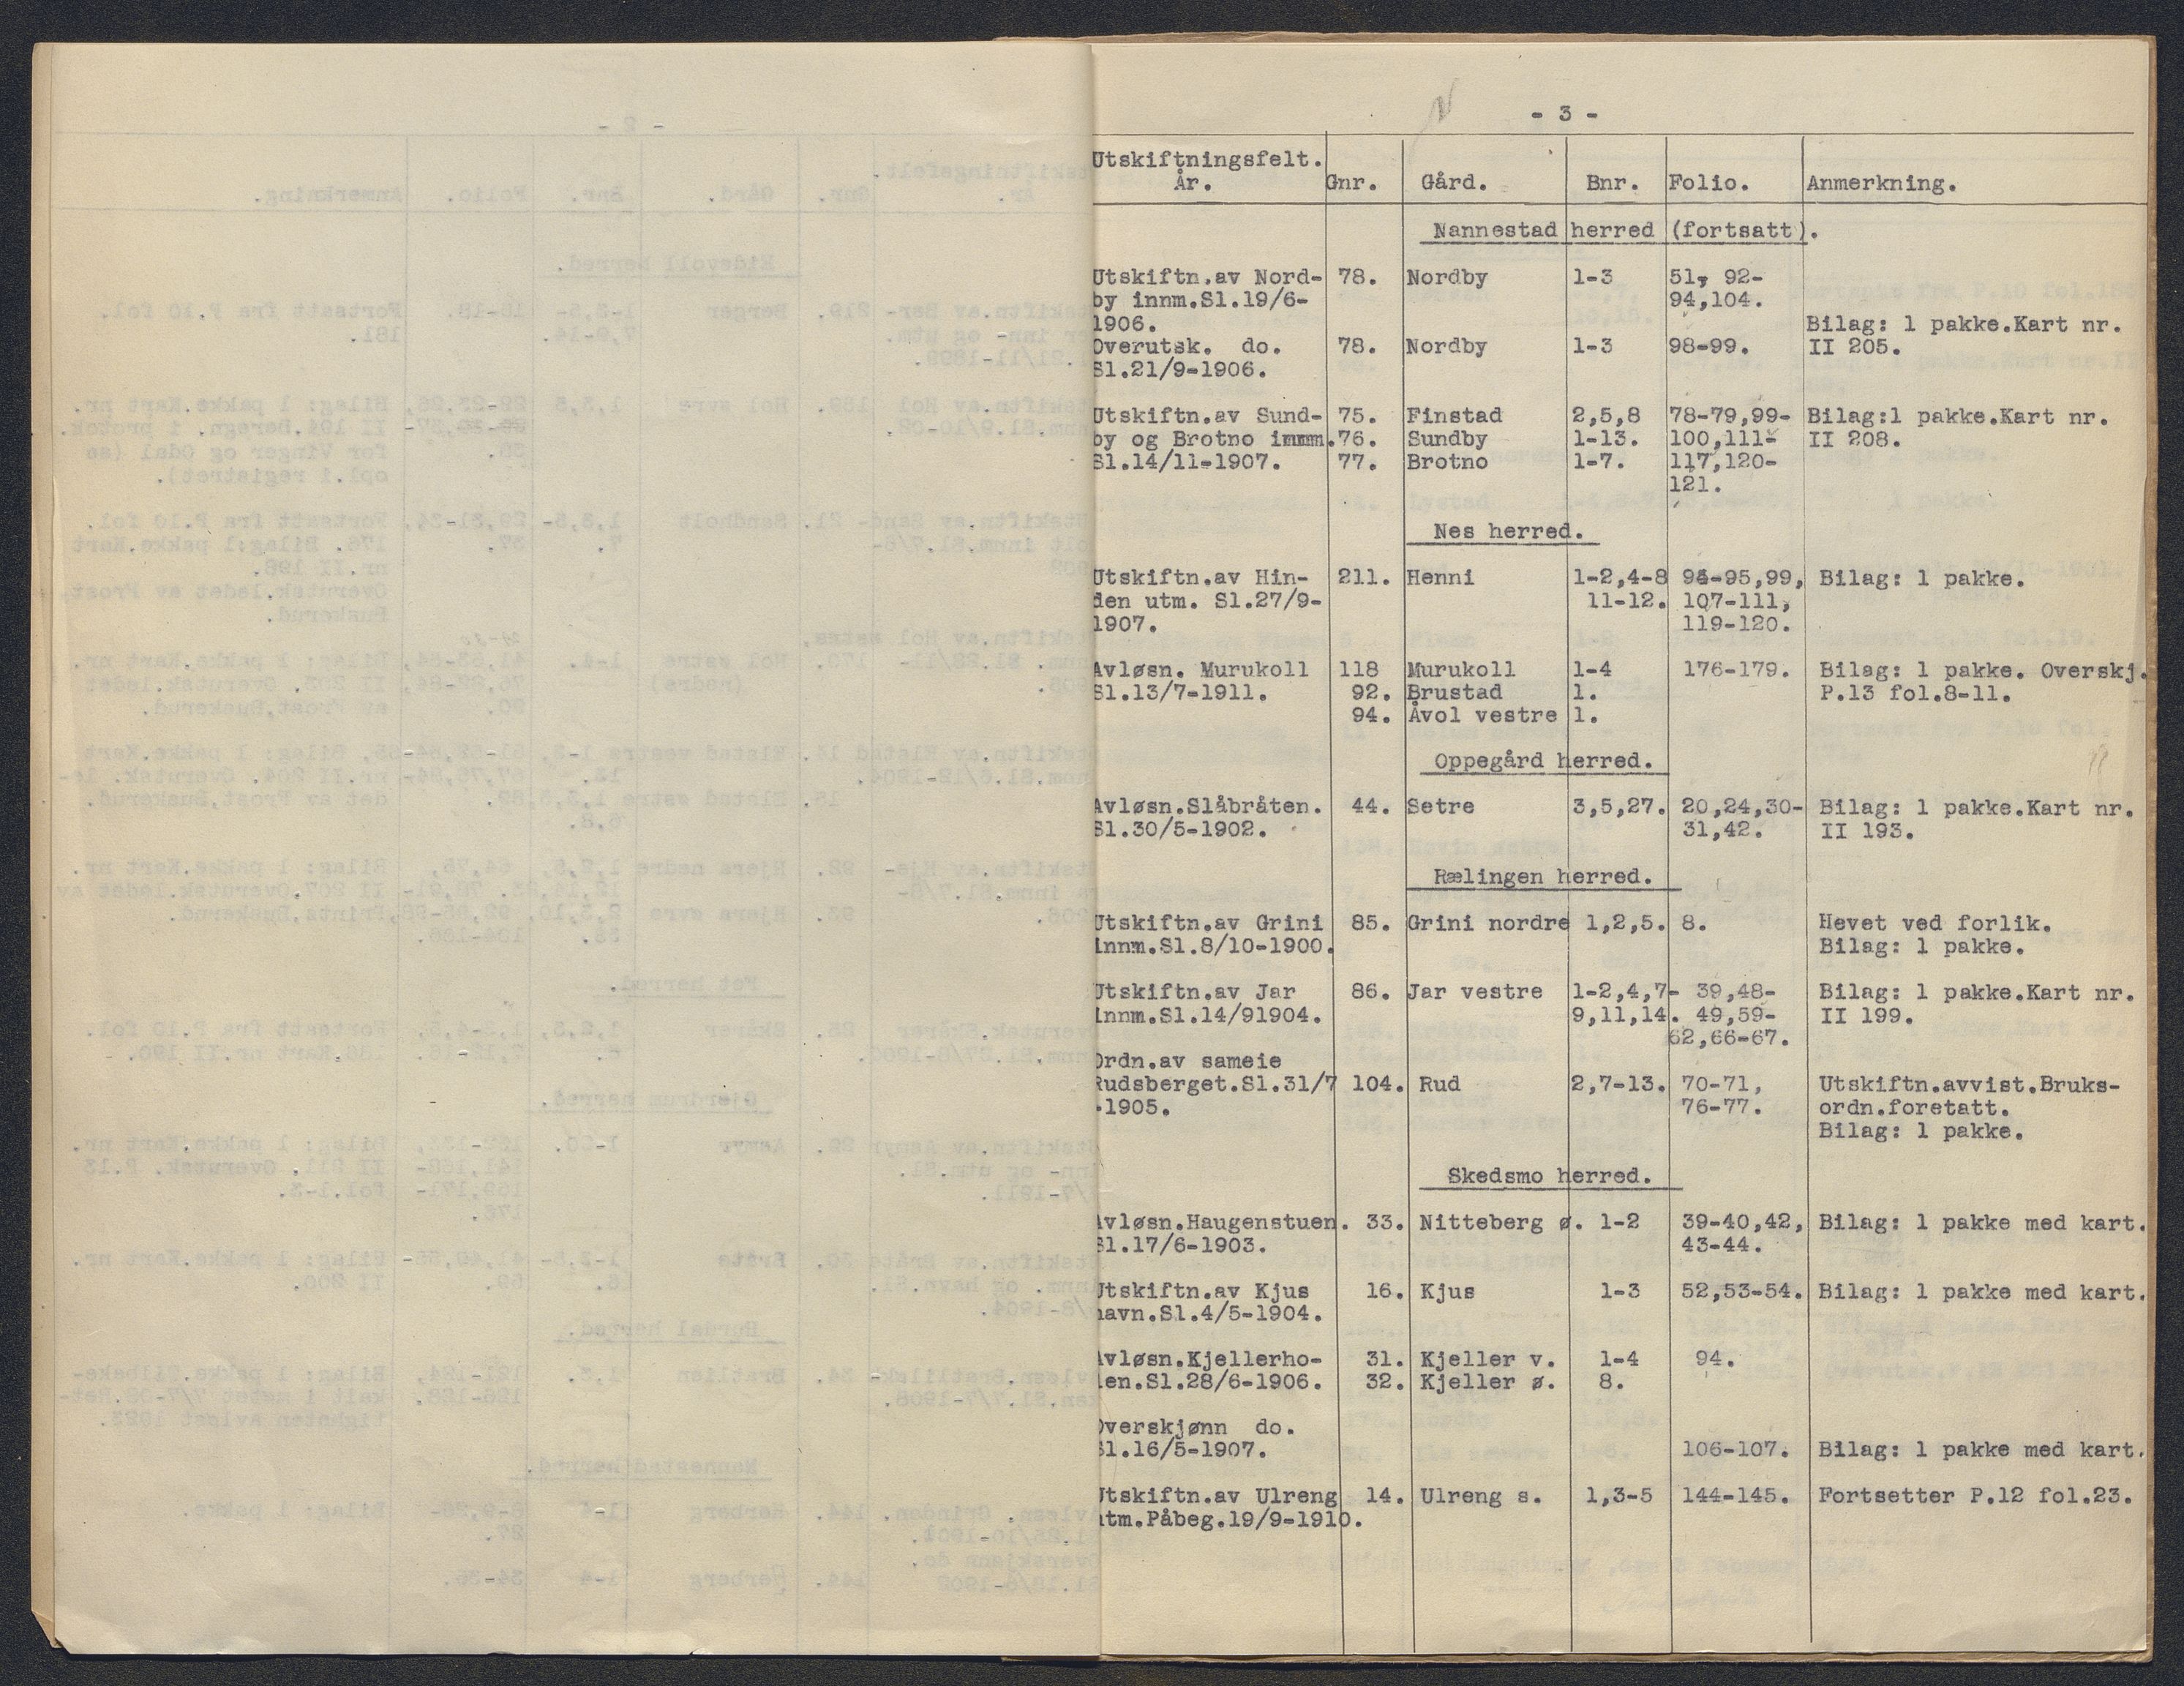 - 3 -
Utskiftningsfelt.
År. Gnr. Gård. Bnr. Folio. Anmerkning.
Nannestad herred (fortsatt).
Utskiftn.av Nord- 78. Nordby 1-3 51, 92-
by innm.Sl.19/6- 94,104.
1906. Bilag: 1 pakke.Kart nr.
Overutsk. do. 78. Nordby 1-3 98-99. II 205.
Sl.21/9-1906.
Utskiftn.av Sund- 75. Finstad 2,5,8 78-79,99- Bilag:1 pakke.Kart nr.
by og Brotno innm. 76. Sundby 1-13. 100,111- II 208.
Sl.14/11-1907. 77. Brotno 1-7. 117,120-
121.
Nes herred.
Utskiftn.av Hin- 211. Henni 1-2,4-8 94-95,99, Bilag: 1 pakke.
den utm. Sl.27/9- 11-12. 107-111,
1907. 119-120.
Avløsn. Murukoll 118 Murukoll 1-4 176-179. Bilag: 1 pakke. Overskj.
Sl.13/7-1911. 92. Brustad 1. P.13 fol.8-11.
94. Åvol vestre 1.
Oppegård herred.
Avløsn.Slåbråten. 44. Setre 3,5,27. 20,24,30- Bilag: 1 pakke.Kart nr.
Sl.30/5-1902. 31,42. II 193.
Rælingen herred.
Utskiftn.av Grini 85. Grini nordre 1,2,5. 8. Hevet ved forlik.
innm.Sl.8/10-1900. Bilag: 1 pakke.
Utskiftn.av Jar 86. Jar vestre 1-2,4,7- 39,48- Bilag: 1 pakke.Kart nr.
innm.Sl.14/91904. 9,11,14. 49,59- II 199.
62,66-67.
Ordn.av sameie
Rudsberget.Sl.31/7 104. Rud 2,7-13. 70-71, Utskiftn.avvist.Bruks-
-1905. 76-77. ordn.foretatt.
Bilag: 1 pakke.
Skedsmo herred.
Avløsn.Haugenstuen. 33. Nitteberg ø. 1-2 39-40,42, Bilag: 1 pakke med kart.
Sl.17/6-1903. 43-44.
Utskiftn.av Kjus 16. Kjus 1-3 52,53-54. Bilag: 1 pakke med kart.
havn.Sl.4/5-1904.
Avløsn.Kjellerho- 31. Kjeller v. 1-4 94.
len.Sl.28/6-1906. 32. Kjeller ø. 8.
Overskjønn do.
Sl.16/5-1907. 106-107. Bilag: 1 pakke med kart.
Utskiftn.av Ulreng 14. Ulreng s. 1,3-5 144-145. Fortsetter P.12 fol.23.
utm.Påbeg.19/9-1910.